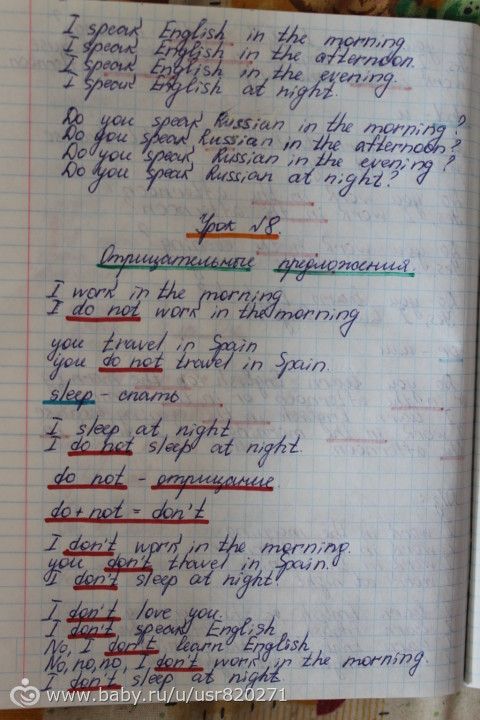 I speak English in the morning
I speak English in the afternoon
I speak English in the evening.
I speak English at night.
Do you speak Russian in the morning?
Do you speak Russian in the afternoon?
Do you speak Russian in the evening?
Do you speak Russian at night?
Урок №8.
Отрицательные предложения.
I work in the morning
I do not work in the morning
you travel in Spain
you do not travel in Spain.
sleep - спать
I sleep at night
I do not sleep at night.
do not - отрицание.
do + not = don't
I don't work in the morning.
you don't travel in Spain.
I don't sleep at night.
I don't love you.
I don't speak English
No, I don't learn English
No, no, no, I don't work in the morning.
I don't sleep at night.
www.baby.ru/u/usr820271